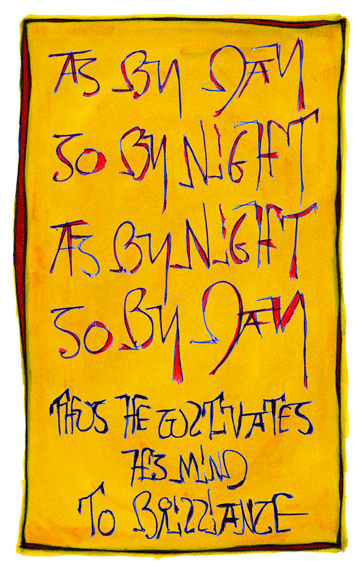 AS BY DAY
SO BY NIGHT
AS BY NIGHT
SO BY DAY
THUS HE CULTIVATES
HIS MIND
TO BRILLIANCE